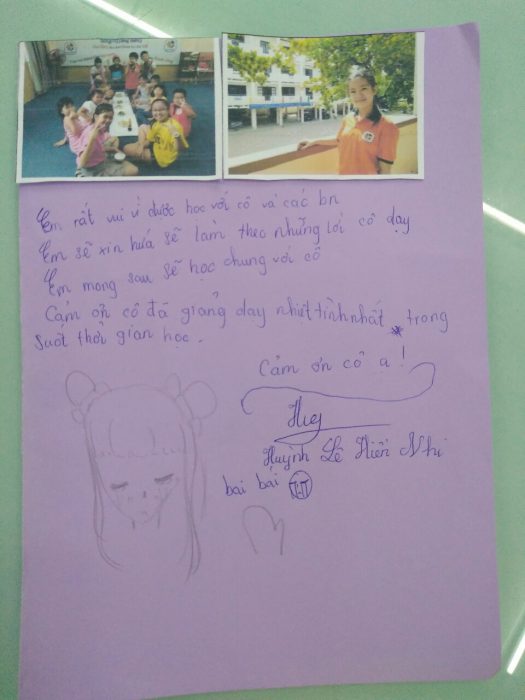 Em rất vui vì được học với cô và các bn
Em sẽ xin hứa sẽ làm theo những lời cô dạy
Em mong sau sẽ học chung với cô
Cảm ơn cô đã giảng dạy nhiệt tình nhất trong
suốt thời gian học.
Cảm ơn cô ạ !
Huỳnh Lê Hiền Nhi
bai bái